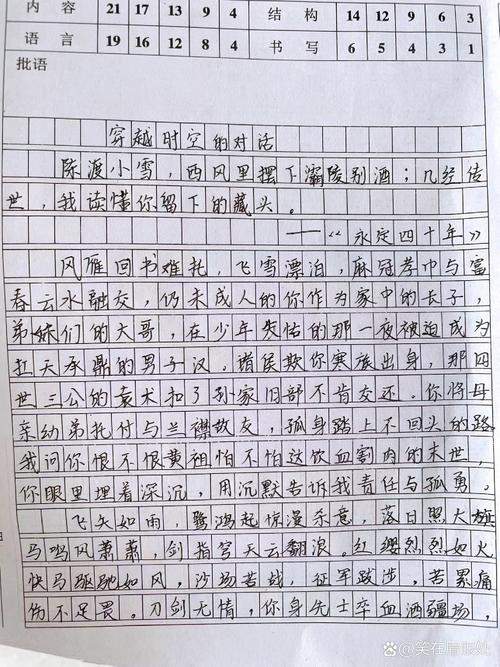 内 容 21 17 13 9 4 结 构 14 12 9 6 3
语 言 19 16 12 8 4 书 写 6 5 4 3 1
批语
穿越时空的对话
陈渡小雪，西风里摆下灞陵别酒；几经传
世，我读懂你留下的藏头。
——《永定四十年》
风雁回书难托，飞雪漂泊，麻冠孝巾与富
春云水融交，仍未成人的你作为家中的长子，
弟妹们的大哥，在少年失怙的那一夜被迫成为
拉天承鼎的男子汉。诸侯欺你寒族出身，那四
世三公的袁术扣了孙家旧部不肯交还。你将母
亲幼弟托付与兰襟故交，孤身踏上不回头的路
我问你恨不恨黄祖怕不怕这饮血割肉的末世，
你眼里埋着深沉，用沉默告诉我责任与孤勇。
飞矢如雨，鹭鸿起惊漫杀意，落日照大旗
马鸣风萧萧，剑指穹天云翻浪。红缨烈烈如火
快马驱驰如风，沙场苦战，征军跋涉，苦累痛
伤不足畏。刀剑无情，你身先士卒血洒疆场，
百家号@笑在眉眼处